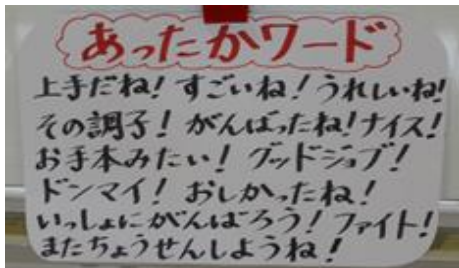 あったかワード
上手だね！すごいね！うれしいね！
その調子！がんばったね！ナイス！
お手本みたい！グッドジョブ！
ドンマイ！おしかったね！
いっしょにがんばろう！ファイト！
またちょうせんしようね！